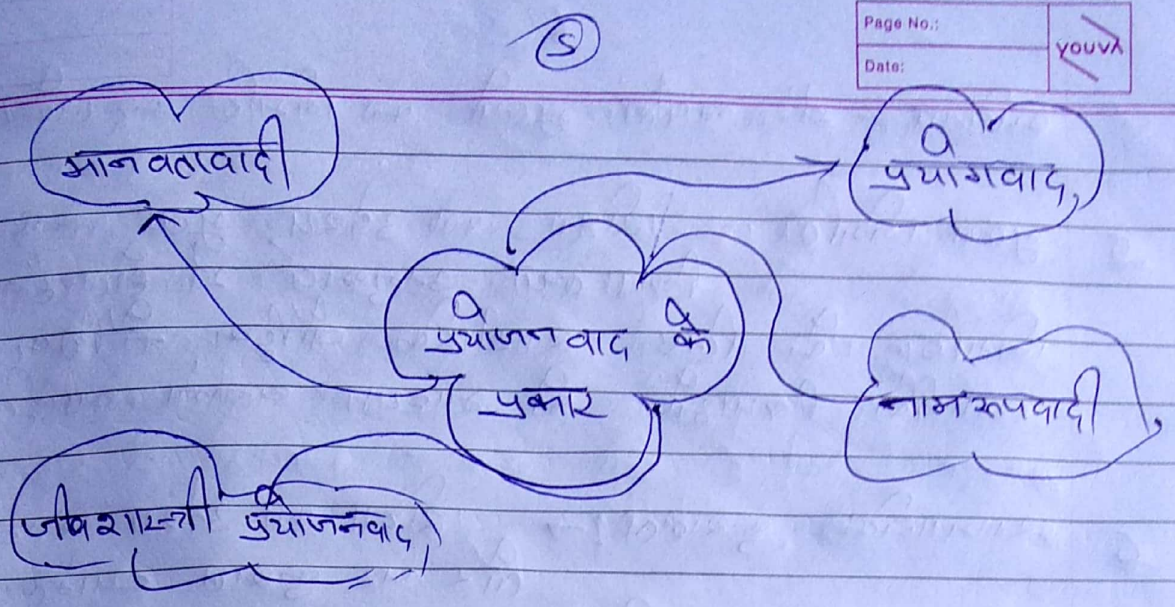 5
Page No.:
Date:
YOUVA
मानवतावादी
प्रयोगवाद
प्रयोजनवाद के
प्रकार
नामरूपवादी
जीवशास्त्री प्रयोजनवाद